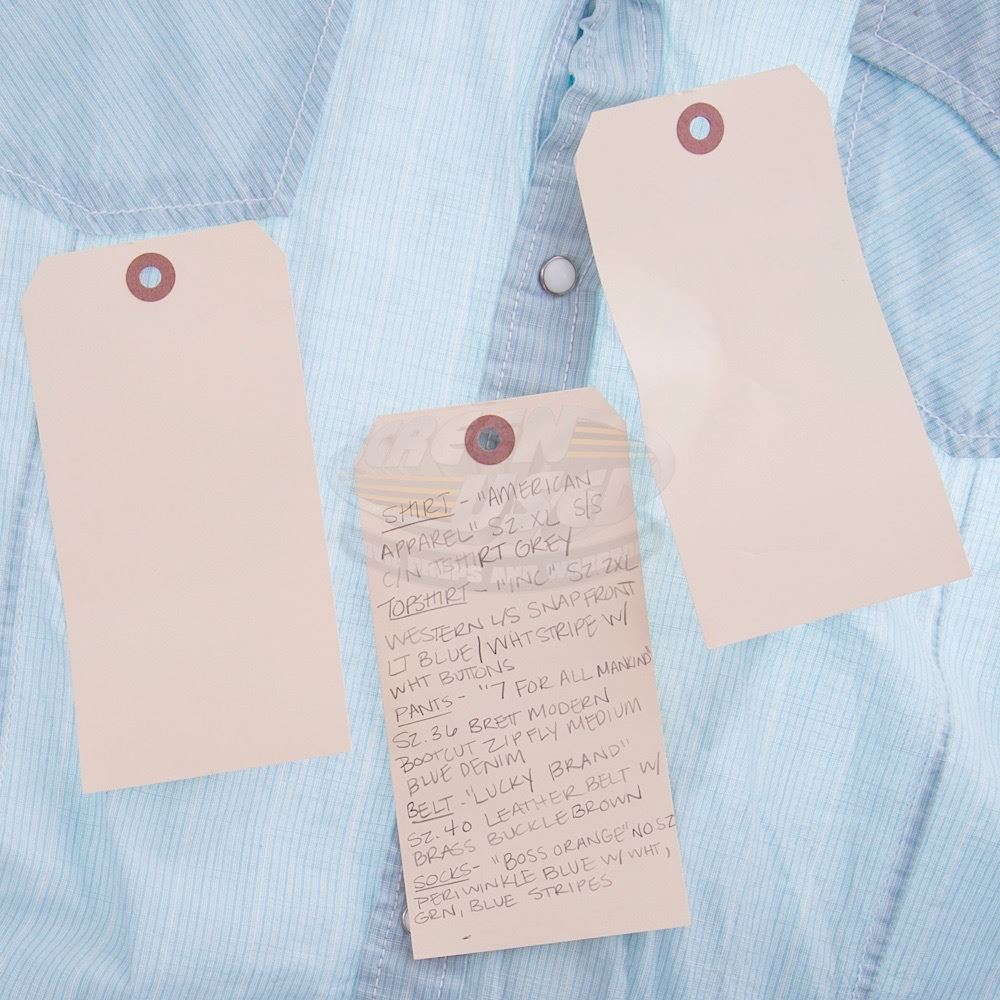 SHIRT - "AMERICAN
APPAREL" SZ. XL S/S
C/N TSHIRT GREY
TOPSHIRT - "INC" SZ 2XL
WESTERN L/S SNAP FRONT
LT BLUE/WHT STRIPE W/
WHT BUTTONS
PANTS - "7 FOR ALL MANKIND"
SZ. 36 BRETT MODERN
BOOTCUT ZIP FLY MEDIUM
BLUE DENIM
BELT - "LUCKY BRAND"
SZ. 40 LEATHER BELT W/
BRASS BUCKLE BROWN
SOCKS - "BOSS ORANGE" NO SZ
PERIWINKLE BLUE W/ WHT,
GRN, BLUE STRIPES
SCREEN
USED
PROPS AND